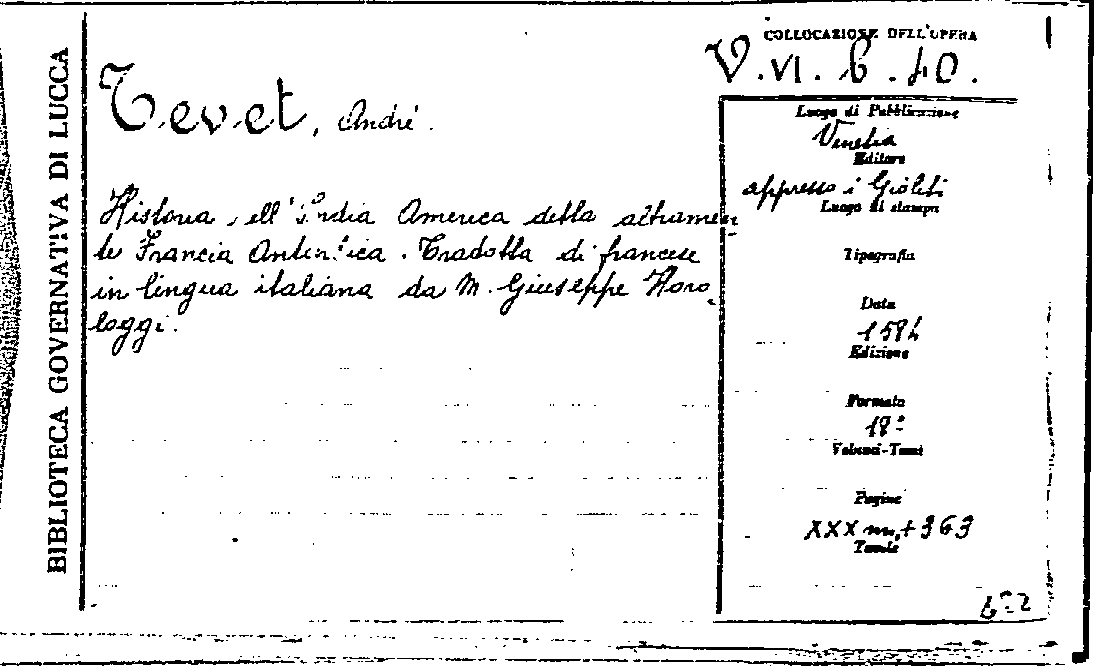 BIBLIOTECA GOVERNATIVA DI LUCCA
COLLOCAZIONE DELL'OPERA
V.VI.b.40.
Tevet, André.
Historia dell'India America detta altramen
te Francia Antartica. Tradotta di francese
in lingua italiana da M. Giuseppe Horo-
loggi.
Luogo di Pubblicazione
Venetia
Editore
appresso i Gioliti
Luogo di stampa
Tipografia
Data
1584
Edizione
Formato
18º
Volumi-Tomi
Pagine
XXX nn.+363
Tavole